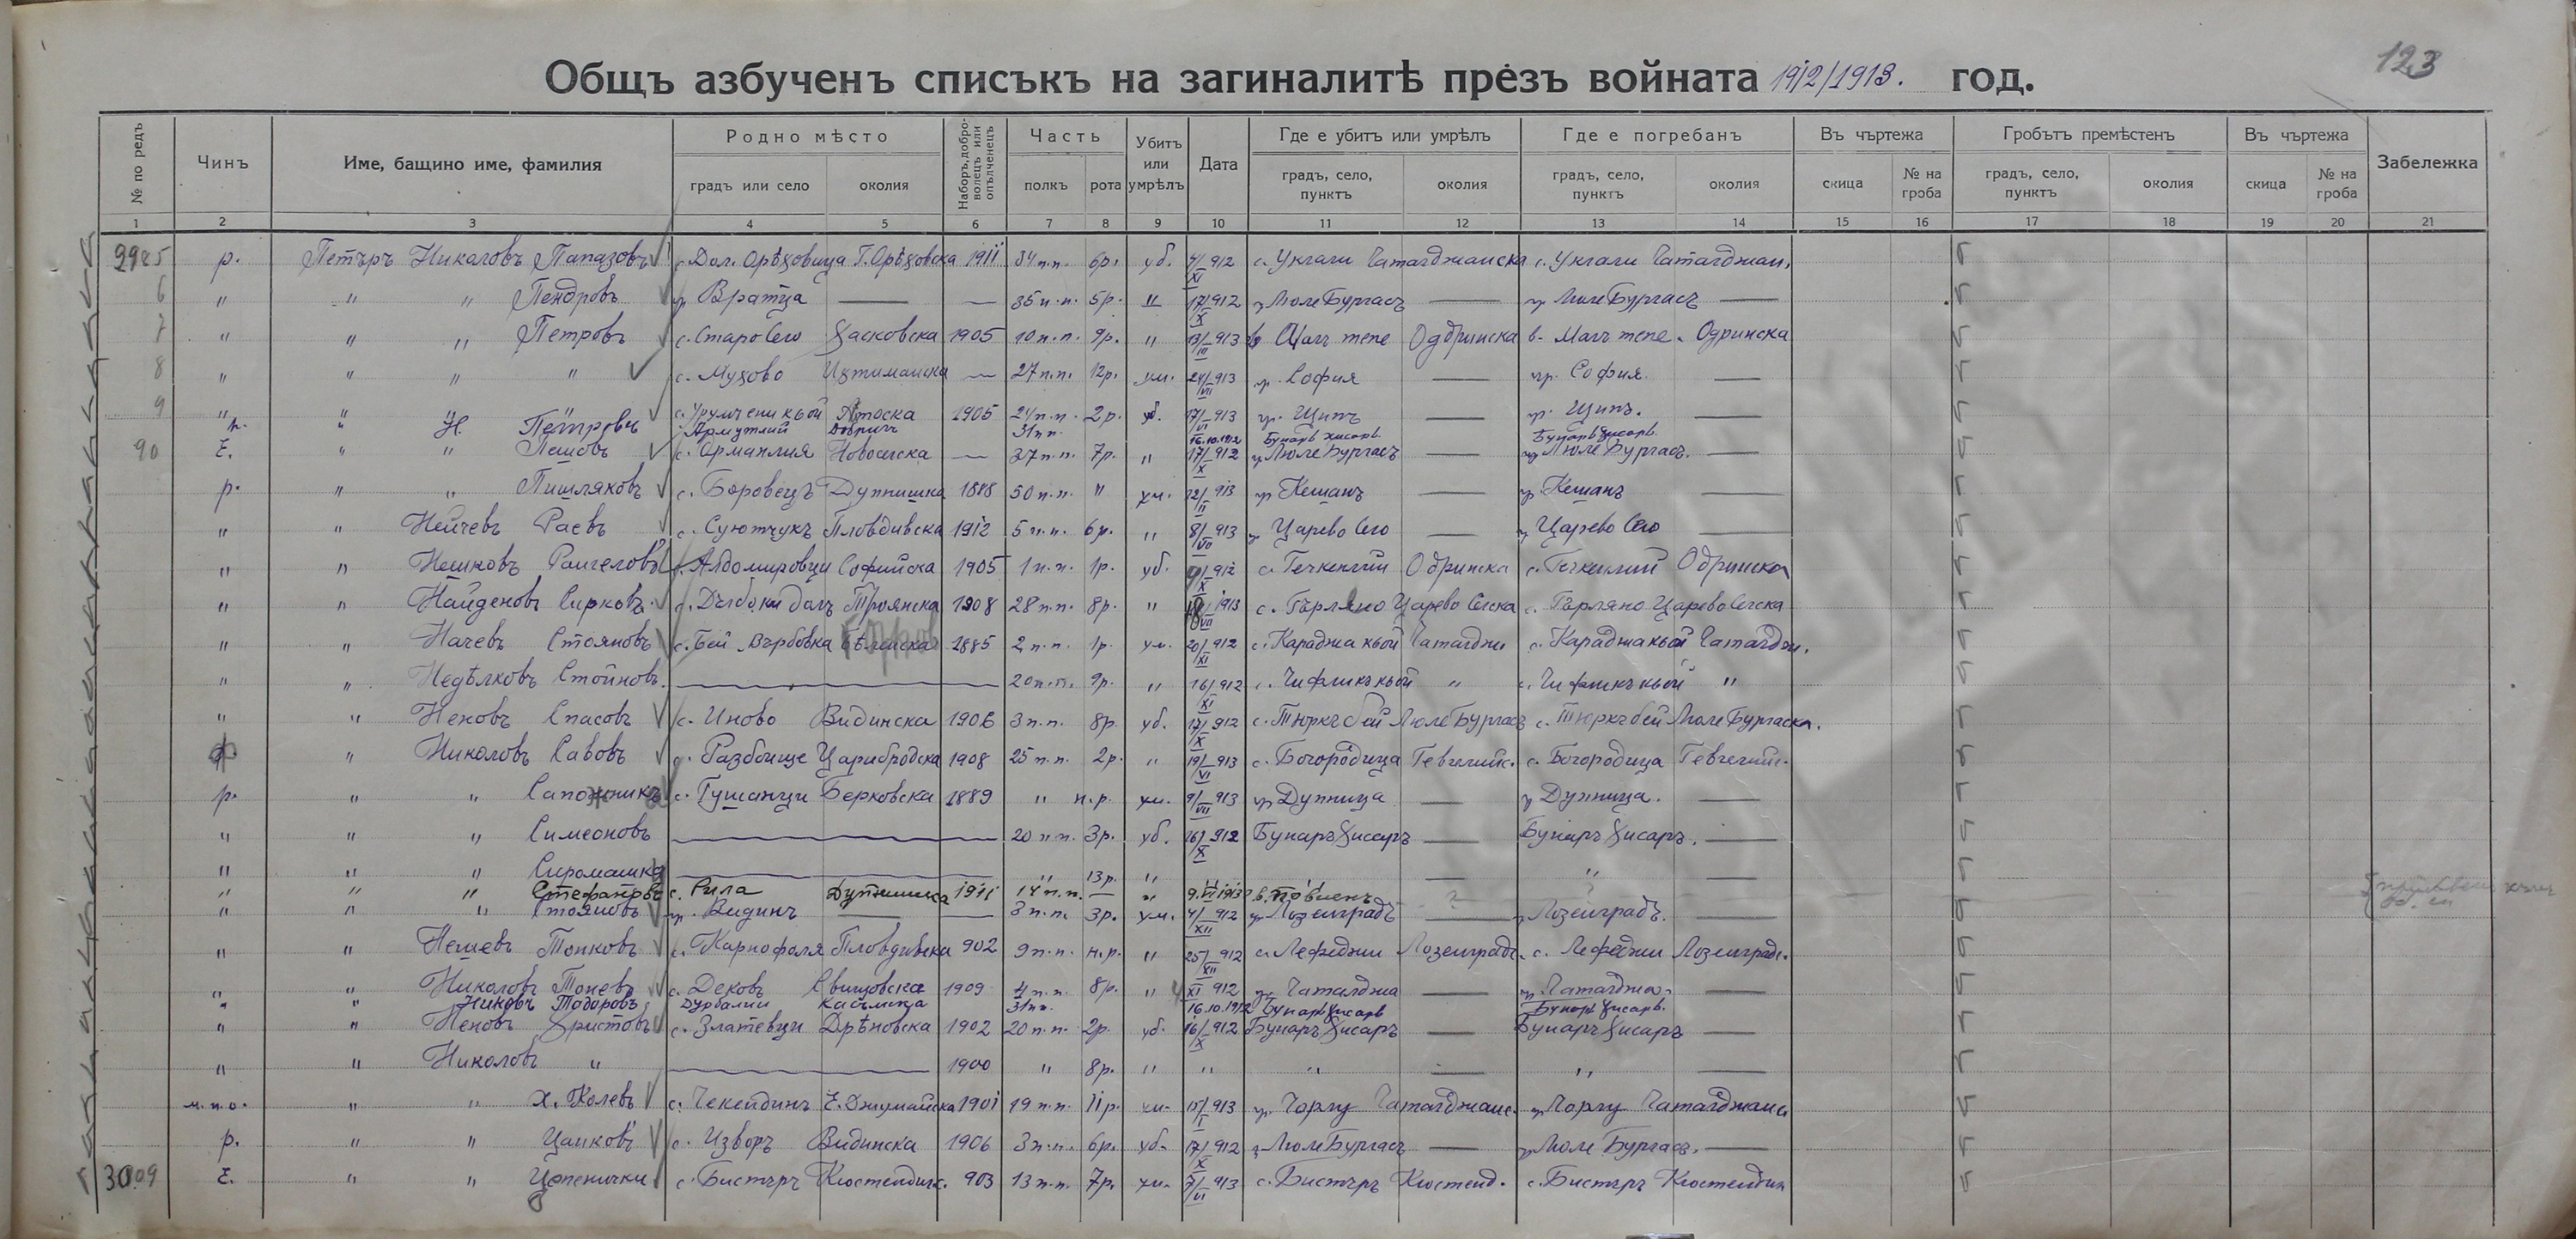 123
Общъ азбученъ списъкъ на загиналитѣ прѣзъ войната 1912/1913. год.
№ по редъ Чинъ Име, бащино име, фамилия Родно мѣсто Наборъ, добро-волецъ или опълченецъ Часть Убитъ или умрѣлъ Дата Где е убитъ или умрѣлъ Где е погребанъ Въ чъртежа Гробътъ премѣстенъ Въ чъртежа Забележка
градъ или село околия полкъ рота градъ, село, пунктъ околия градъ, село, пунктъ околия скица № на гроба градъ, село, пунктъ околия скица № на гроба
1 2 3 4 5 6 7 8 9 10 11 12 13 14 15 16 17 18 19 20 21
2985 р. Петъръ Николовъ Папазовъ с. Дол. Орѣховица Г. Орѣховска 1911 34 п.п. 6р. уб. 4/XI 912 с. Уклали Чаталджанска с. Уклали Чаталджан.
6 " " " Пендровъ гр. Вратца — — 35 п.п. 5р. " 17/X 912 гр. Люле Бургасъ — гр. Люле Бургасъ —
7 " " " Петровъ с. Старо Село Хасковска 1905 10 п.п. 9р. " 13/III 913 в. Малъ тепе Одринска в. Малъ тепе Одринска
8 " " " " с. Мухово Ихтиманска — 27 п.п. 12р. ум. 24/VII 913 гр. София — гр. София —
9 " " " " с. Урумъ ени кьой Атоска 1905 21 п.п. 2р. уб. 17/VI 913 гр. Щипъ — гр. Щипъ. —
р. " Н. Петровъ Армутлий Добричъ 31 п.п. 16.10.1912 Бунаръ хисаръ Бунаръ хисаръ
90 Е. " " Пешовъ с. Орманлия Новоселска — 37 п.п. 7р. " 17/X 912 гр. Люле Бургасъ — гр. Люле Бургасъ. —
р. " " Пишляковъ с. Боровецъ Дупнишка 1888 50 п.п. " ум. 12/II 913 гр. Кешанъ — гр. Кешанъ —
" " Нейчевъ Раевъ с. Суютчукъ Пловдивска 1912 5 п.п. 6р. " 8/VII 913 гр. Царево Село — гр. Царево Село —
" " Нешковъ Рангеловъ с. Алдомировци Софийска 1905 1 п.п. 1р. уб. 9/X 912 с. Гечкенлий Одринска с. Гечкенлий Одринска
" " Найденовъ Сирковъ с. Дълбоки долъ Троянска 1908 28 п.п. 8р. " VII 1913 с. Гърляно Царево Селска с. Гърляно Царево Селска
" " Начевъ Стояновъ с. Бей Върбовка Бѣленска 1885 2 п.п. 1р. ум. 20/XI 912 с. Караджа кьой Чаталдж. с. Караджа кьой Чаталдж.
" " Недѣлковъ Стойновъ. — 20 п.п. 9р. " 16/XI 912 с. Чифликъ кьой " с. Чифликъ кьой "
" " Неновъ Спасовъ с. Иново Видинска 1906 3 п.п. 8р. уб. 17/X 912 с. Тюркъ бей Люле Бургасъ с. Тюркъ бей Люле Бургаска.
" Николовъ Савовъ с. Разбоище Царибродска 1908 25 п.п. 2р. " 19/VI 913 с. Богородица Гевгелийс. с. Богородица Гевгелийс.
р. " " Сапожникъ с. Гушанци Берковска 1889 " н.р. ум. 9/VII 913 гр. Дупница — гр. Дупница. —
" " " Симеоновъ — 20 п.п. 3р. уб. 16/X 912 Бунаръ Хисаръ — Бунаръ Хисаръ. —
" " " Сиромашка — " 13р. " " " — " —
" " " Стефановъ с. Рила Дупнишка 1911 14 п.п. — " 9.VII 1913 в. Повиенъ ?
" " " Стояновъ гр. Видинъ — — 3 п.п. 3р. ум. 4/XII 912 гр. Лозенградъ — гр. Лозенградъ. —
" " Нешевъ Топковъ с. Карнофоля Пловдивска 902 9 п.п. н.р. " 25/XII 912 с. Лефеджи Лозенградс. с. Лефеджи Лозенградс.
" " Николовъ Тоневъ с. Дековъ Свищовска 1909 4 п.п. 8р. " 4/XI 912 гр. Чаталджа — гр. Чаталджа. —
" " Никовъ Тодоровъ Дурбалии Касъмска 31 п.п. 16.10.1912 Бунаръ Хисаръ Бунаръ Хисаръ.
" " Неновъ Христовъ с. Златевци Дрѣновска 1902 20 п.п. 2р. уб. 16/X 912 Бунаръ Хисаръ — Бунаръ Хисаръ —
" " Николовъ " — 1900 " 8р. " " " — " —
м.п.о. " " Х. Колевъ с. Чекендинъ Е. Джумайска 1901 19 п.п. 11р. ум. 15/I 913 гр. Чорлу Чаталджанс. гр. Чорлу Чаталджанс
р. " " Цанковъ с. Изворъ Видинска 1906 3 п.п. 6р. уб. 17/X 912 гр. Люле Бургасъ — гр. Люле Бургасъ. —
3009 Е. " " Цепенички с. Бистъръ Кюстендилс. 903 13 п.п. 7р. ум. 7/VI 913 с. Бистъръ Кюстенд. с. Бистъръ Кюстендил